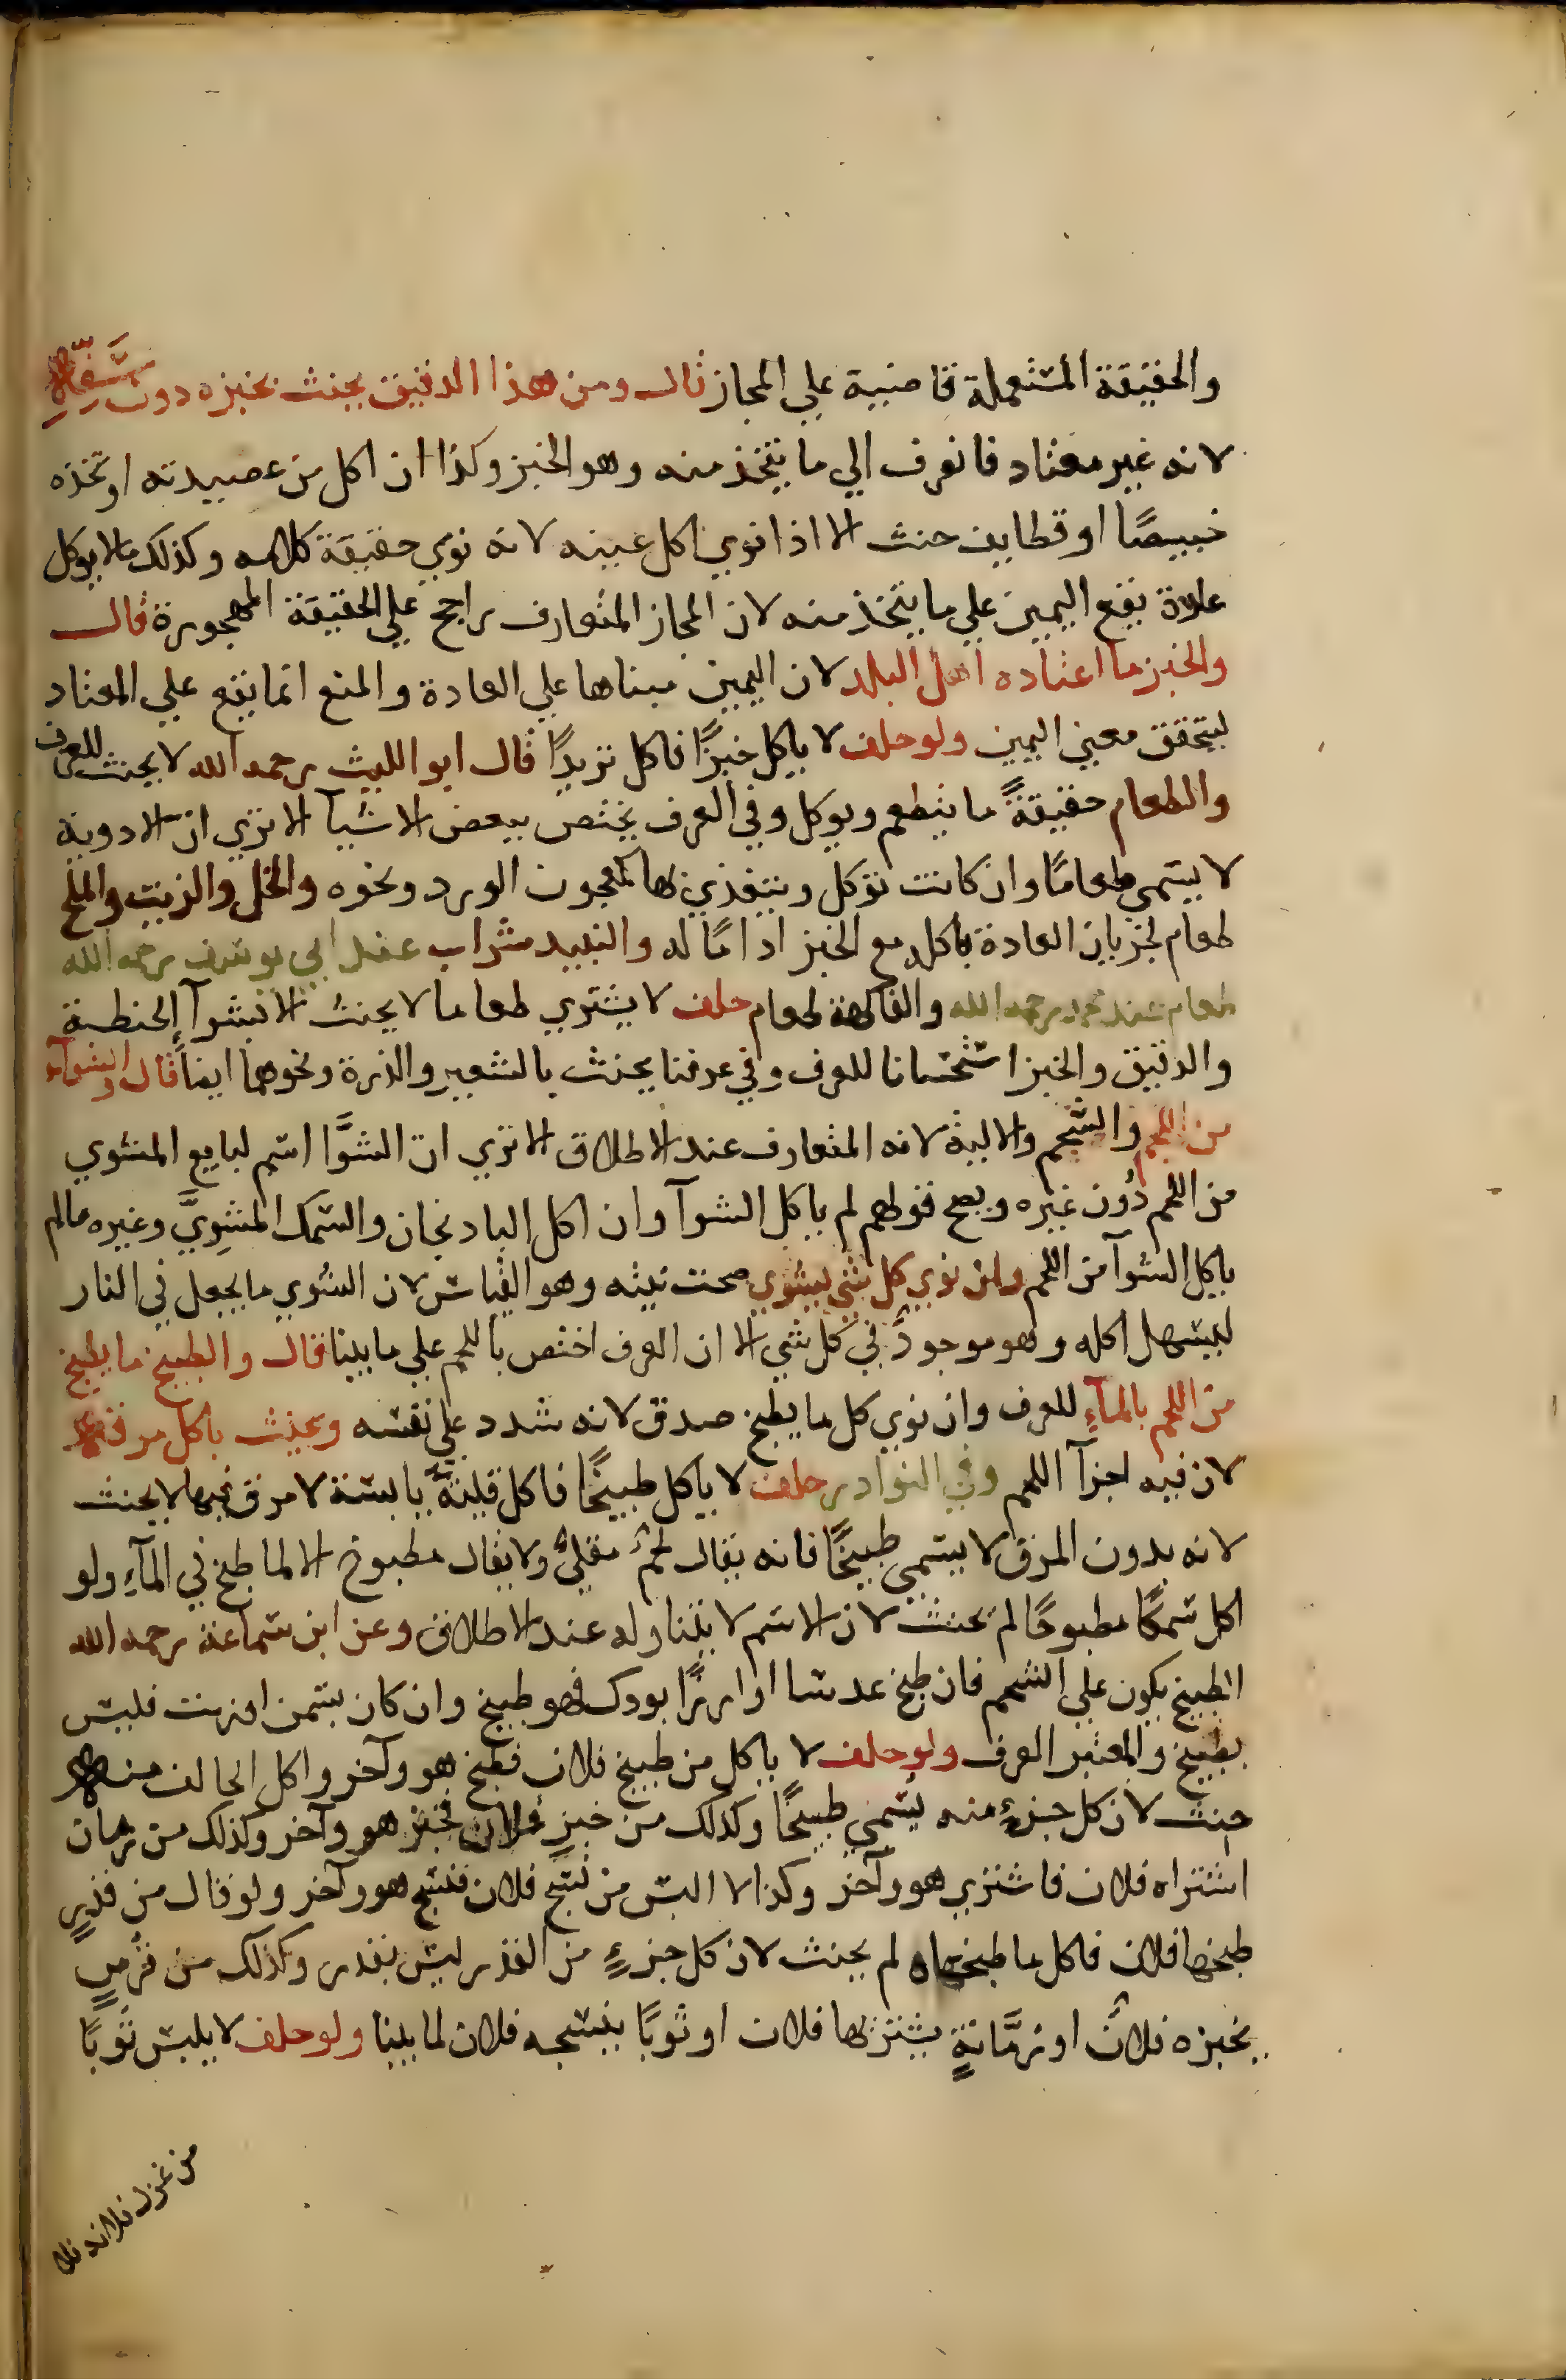 والحقيقة المستعملة قاضية علي المجاز قال ومن هذا الدقيق يحنث بخبزه دون سَفِّهِ
لانه غير معتاد فانصرف الي ما يتخذ منه وهو الخبز وكذا ان اكل من عصيدته او تخذه
خبيصًا او قطايف حنث الا اذا نوي اكل عينه لانه نوي حقيقة كلامه وكذلك مالا يوكل
عادة يقع اليمين علي ما يتخذ منه لان المجاز المتعارف راجح علي الحقيقة المهجورة قال
والخبز ما اعتاده اهل البلد لان اليمين مبناها علي العادة والمنع انما يقع علي المعتاد
ليتحقق معني اليمين ولو حلف لا ياكل خبزًا فاكل ثريدًا قال ابو الليث رحمه الله لا يحنث للعرف
والطعام حقيقةً ما يتطعم ويوكل وفي العرف يختص ببعض الاشيآ الا تري ان الادوية
لا يسمي طعامًا وان كانت توكل ويتغذي بها كمعجون الورد ونحوه والخل والزيت والملح
طعام لجريان العادة باكله مع الخبز ادامًا له والنبيد شراب عند ابي يوسف رحمه الله
طعام عند محمد رحمه الله والفاكهة طعام حلف لا يشتري طعاما لا يحنث الا بشرآ الحنطة
والدقيق والخبز استحسانا للعرف وفي عرفنا يحنث بالشعير والذرة ونحوهما ايضاً قال والشوآء
من اللحم والشحم والالية لانه المتعارف عند الاطلاق الا تري ان الشوَّا اسم لبايع المشوي
من اللحم دُون غيره ويصح قولهم لم ياكل الشوآ وان اكل البادنجان والسمك المشوِيَّ وغيره ما لم
ياكل الشوآ من اللحم وان نوي كل شي يشوي صحت نيته وهو القياس لان الشوي ما يجعل في النار
ليسهل اكله وهو موجودٌ في كل شي الا ان العرف اختص باللحم علي ما بينا قال والطبيخ ما يطبخ
من اللحم بالمآءِ للعرف وان نوي كل ما يطبخ صدق لانه شدد علي نفسه ويحنث باكل مرقه
لان فيه اجزآ اللحم وفي النوادر حلف لا ياكل طبيخًا فاكل قليةً يابسة لا مرق فيها لا يحنث
لانه بدون المرق لا يسمي طبيخًا فانه يقال لحمٌ مقليٌّ ولا يقال مطبوخ الا لما طبخ في المآءِ ولو
اكل سمكًا مطبوخًا لم يحنث لان الاسم لا يتناوله عند الاطلاق وعن ابن سماعة رحمه الله
الطبيخ يكون علي الشحم فان طبخ عدسا او ارزًا بودك فهو طبيخ وان كان بسمن او زيت فليس
بطبيخ والمعتبر العرف ولو حلف لا ياكل من طبيخ فلان فطبخ هو وآخر واكل الحالف منه
حنث لان كل جزءٍ منه يسمي طبيخًا وكذلك من خبز فلان فخبز هو وآخر وكذلك من رمان
اشتراه فلان فاشتري هو وآخر وكذا لا البس من نسج فلان فنسج هو وآخر ولو قال من قدرٍ
طبخها فلان فاكل ما طبخاه لم يحنث لان كل جزءٍ من القدر ليس بقدر وكذلك من قرصٍ
يخبزه فلانٌ او رمَّانةٍ يشتريها فلان او ثوبًا ينسجه فلان لما بينا ولو حلف لا يلبس ثوبًا
من غزل فلانه فلا